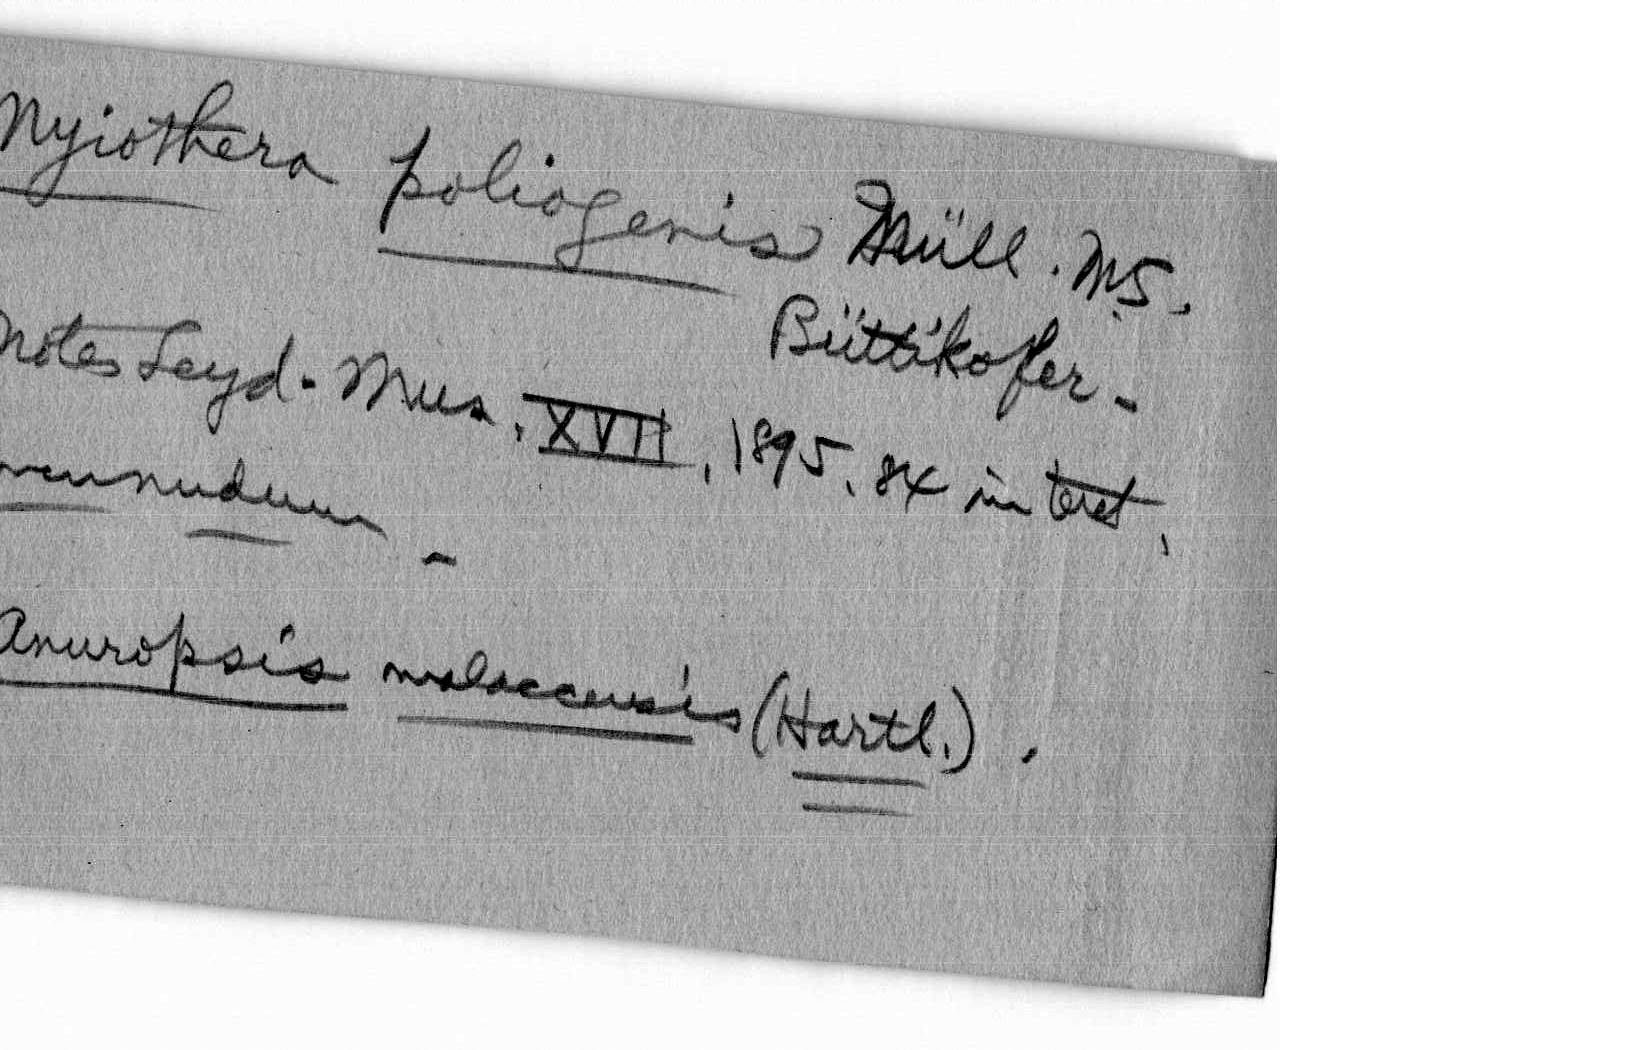 Myiothera poliogenis Müll. MS.
Büttikofer -
Notes Leyd. Mus., XVII, 1895, 84 in text,
nudum -
Anuropsis malaccensis (Hartl.).